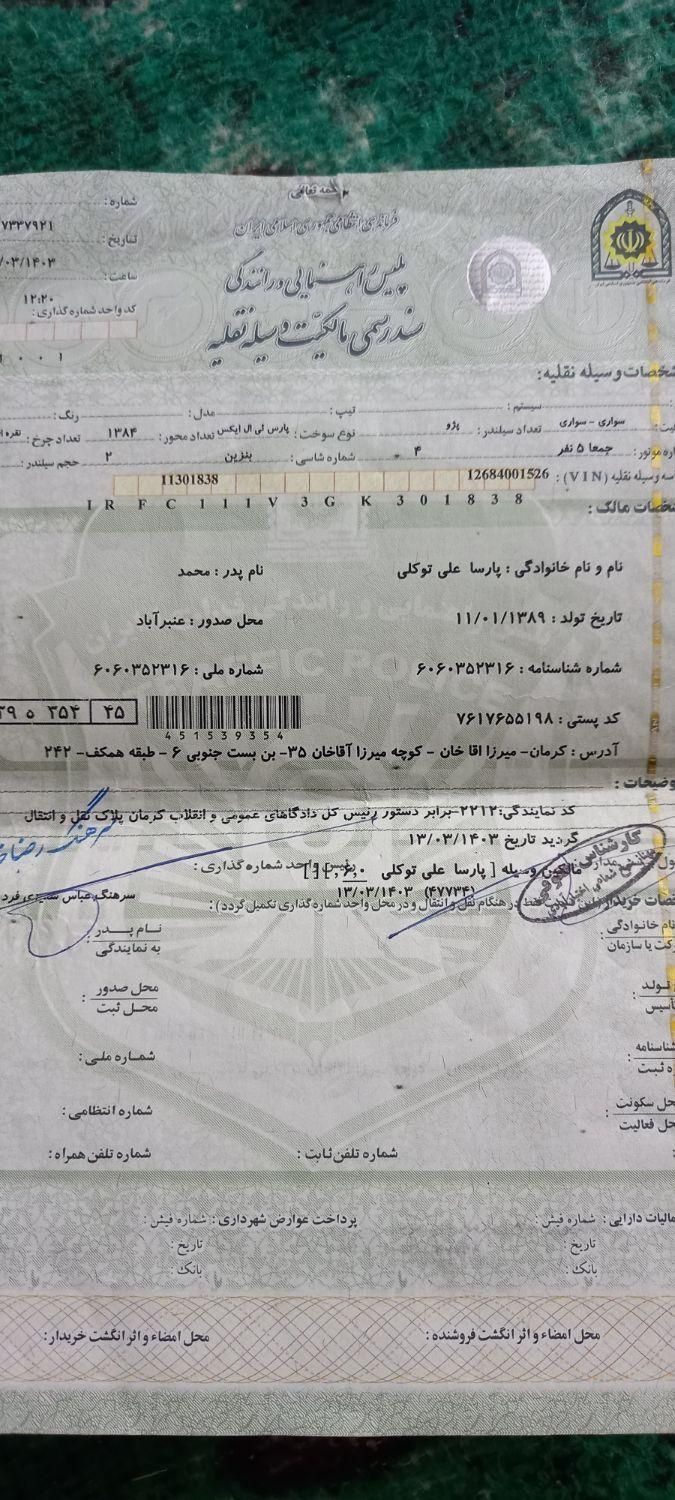 بسمه تعالی
فرماندهی انتظامی جمهوری اسلامی ایران
پلیس راهنمایی و رانندگی
سند رسمی مالکیت وسیله نقلیه
شماره :
۷۳۳۷۹۲۱
تاریخ :
/۰۳/۱۴۰۳
ساعت :
۱۲:۲۰
کد واحد شماره گذاری :
۱ ۰ ۰ ۱
شخصات وسیله نقلیه:
سیستم : تیپ : مدل : رنگ :
سواری - سواری پژو پارس تی ال ایکس ۱۳۸۴ نقره
تعداد سیلندر : نوع سوخت : تعداد محور : تعداد چرخ :
جمعا ۵ نفر ۴ بنزین ۲
شماره شاسی : حجم سیلندر :
12684001526 11301838
سه وسیله نقلیه (VIN) :
I R F C 1 1 1 V 3 G K 3 0 1 8 3 8
شخصات مالک :
نام و نام خانوادگی : پارسا علی توکلی نام پدر : محمد
تاریخ تولد : ۱۱/۰۱/۱۳۸۹ محل صدور : عنبرآباد
شماره شناسنامه : ۶۰۶۰۳۵۲۳۱۶ شماره ملی : ۶۰۶۰۳۵۲۳۱۶
کد پستی : ۷۶۱۷۶۵۵۱۹۸
451539354
۴۵ ۳۵۴ ه ۳۹
آدرس : کرمان- میرزا اقا خان - کوچه میرزا آقاخان ۳۵- بن بست جنوبی ۶ - طبقه همکف- ۲۴۲
وضیحات :
کد نمایندگی:۲۲۱۲-برابر دستور رئیس کل دادگاهای عمومی و انقلاب کرمان پلاک نقل و انتقال
گردید تاریخ ۱۳/۰۳/۱۴۰۳
مالکین وسیله [ پارسا علی توکلی ۶،۰
رئیس واحد شماره گذاری :
۱۳/۰۳/۱۴۰۳ (۴۷۷۳۴)
سرهنگ عباس
در هنگام نقل و انتقال و در محل واحد شماره گذاری تکمیل گردد) :
نام خانوادگی : نام پدر :
رکت یا سازمان به نمایندگی
تولد محل صدور :
أسیس محل ثبت
شناسنامه : شماره ملی :
ه ثبت
حل سکونت : شماره انتظامی :
حل فعالیت
شماره تلفن ثابت : شماره تلفن همراه :
مالیات دارایی : شماره فیش : پرداخت عوارض شهرداری : شماره فیش :
تاریخ : تاریخ :
بانک : بانک :
محل امضاء و اثر انگشت فروشنده : محل امضاء و اثر انگشت خریدار: